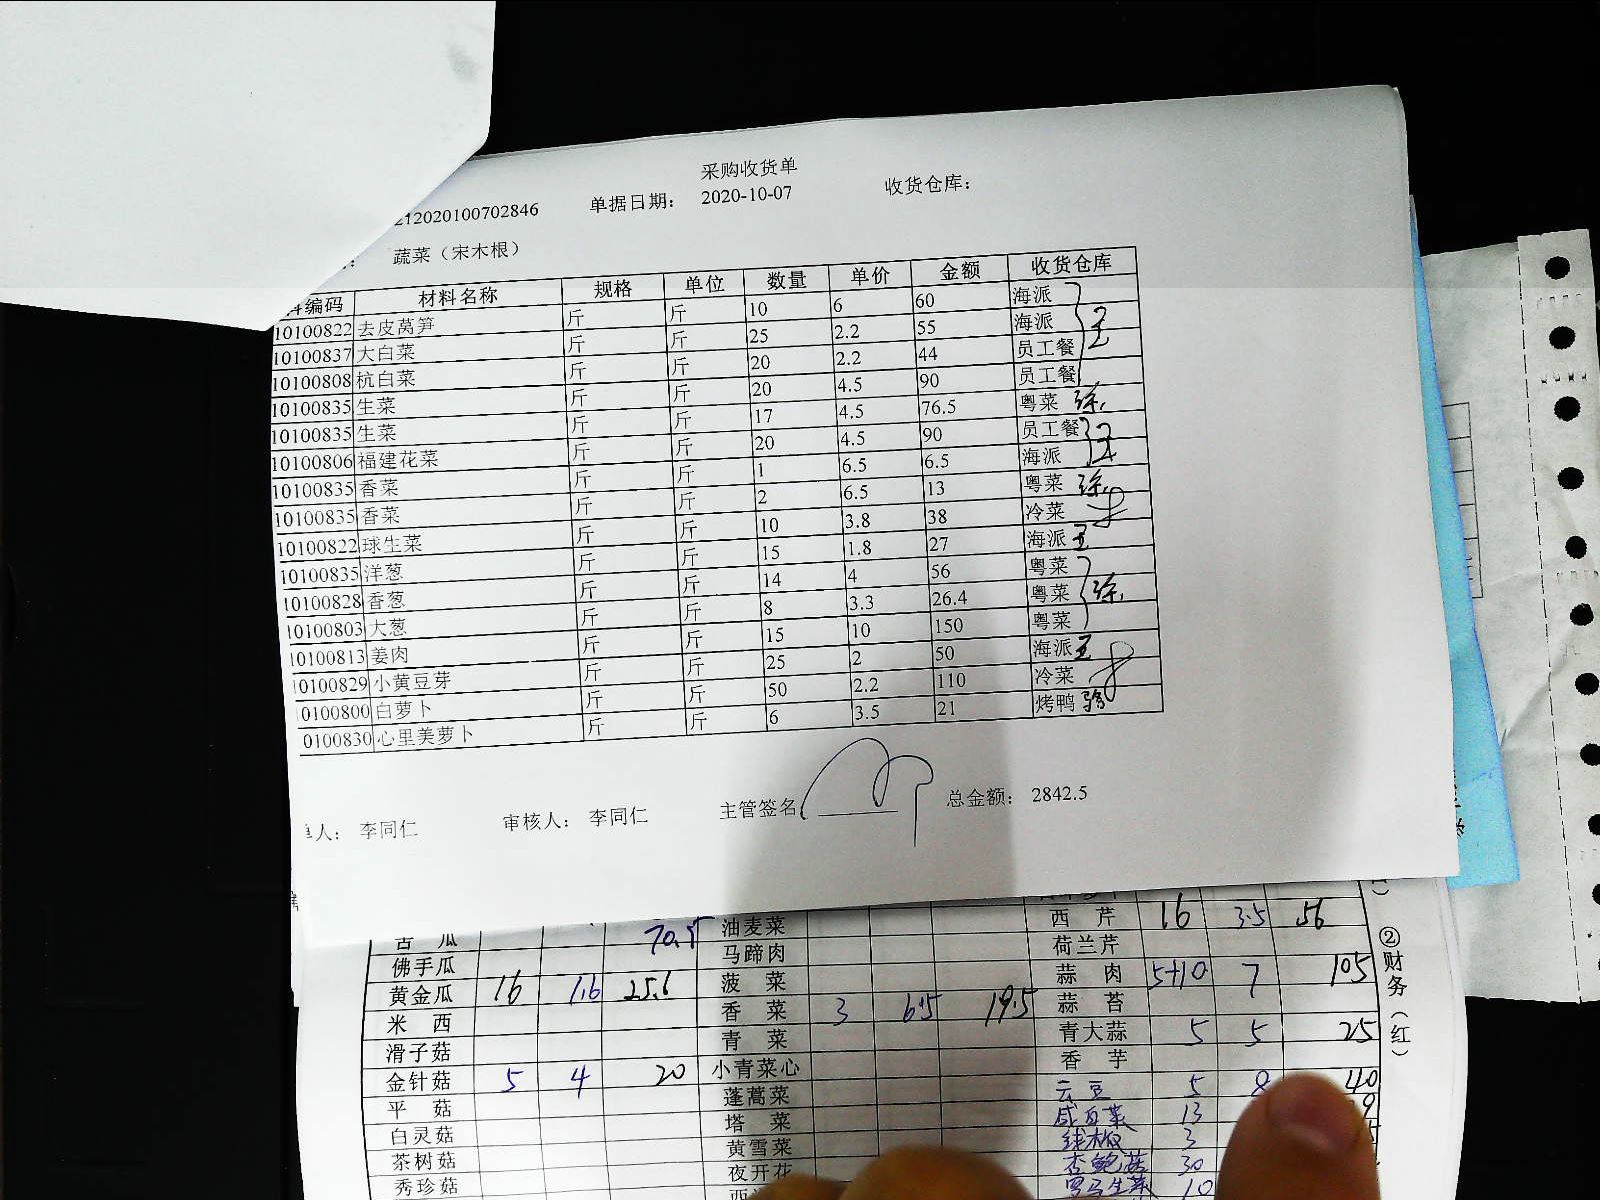 采购收货单
212020100702846 单据日期： 2020-10-07 收货仓库：
蔬菜（宋木根）
料编码 材料名称 规格 单位 数量 单价 金额 收货仓库
10100822 去皮莴笋 斤 斤 10 6 60 海派
10100837 大白菜 斤 斤 25 2.2 55 海派 王
10100808 杭白菜 斤 斤 20 2.2 44 员工餐
10100835 生菜 斤 斤 20 4.5 90 员工餐
10100835 生菜 斤 斤 17 4.5 76.5 粤菜 徐
10100806 福建花菜 斤 斤 20 4.5 90 员工餐 王
10100835 香菜 斤 斤 1 6.5 6.5 海派
10100835 香菜 斤 斤 2 6.5 13 粤菜 徐
10100822 球生菜 斤 斤 10 3.8 38 冷菜
10100835 洋葱 斤 斤 15 1.8 27 海派 王
10100828 香葱 斤 斤 14 4 56 粤菜
10100803 大葱 斤 斤 8 3.3 26.4 粤菜 徐
10100813 姜肉 斤 斤 15 10 150 粤菜
10100829 小黄豆芽 斤 斤 25 2 50 海派 王
0100800 白萝卜 斤 斤 50 2.2 110 冷菜
0100830 心里美萝卜 斤 斤 6 3.5 21 烤鸭
单人： 李同仁 审核人： 李同仁 主管签名 总金额： 2842.5
苦 瓜 70.5 油麦菜 西 芹 16 3.5 56
佛手瓜 马蹄肉 荷兰芹
黄金瓜 16 1.6 25.6 菠 菜 蒜 肉 5+10 7 105
米 西 香 菜 3 6.5 19.5 蒜 苔
滑子菇 青 菜 青大蒜 5 5 25
金针菇 5 4 20 小青菜心 香 芋
平 菇 蓬蒿菜 云豆 5 8 40
白灵菇 塔 菜 咸白菜 13 9
茶树菇 黄雪菜 线椒 3
秀珍菇 夜开花 杏鲍菇 30
罗马生菜 10
②财务（红）